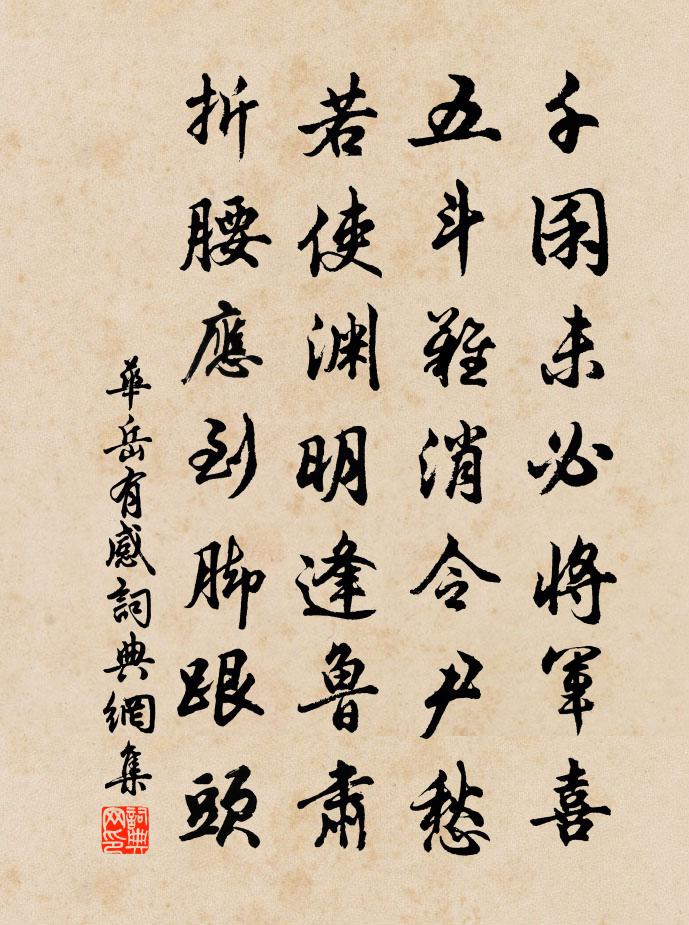 千囷未必將軍喜
五斗難消令尹愁
若使淵明逢魯肅
折腰應到脚跟頭
華岳有感詞典網集
詞典网印